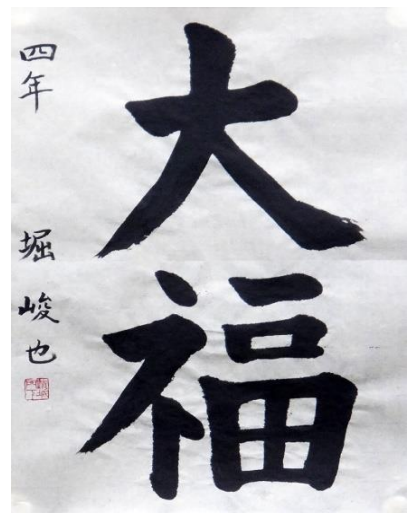 大福
四年 堀峻也